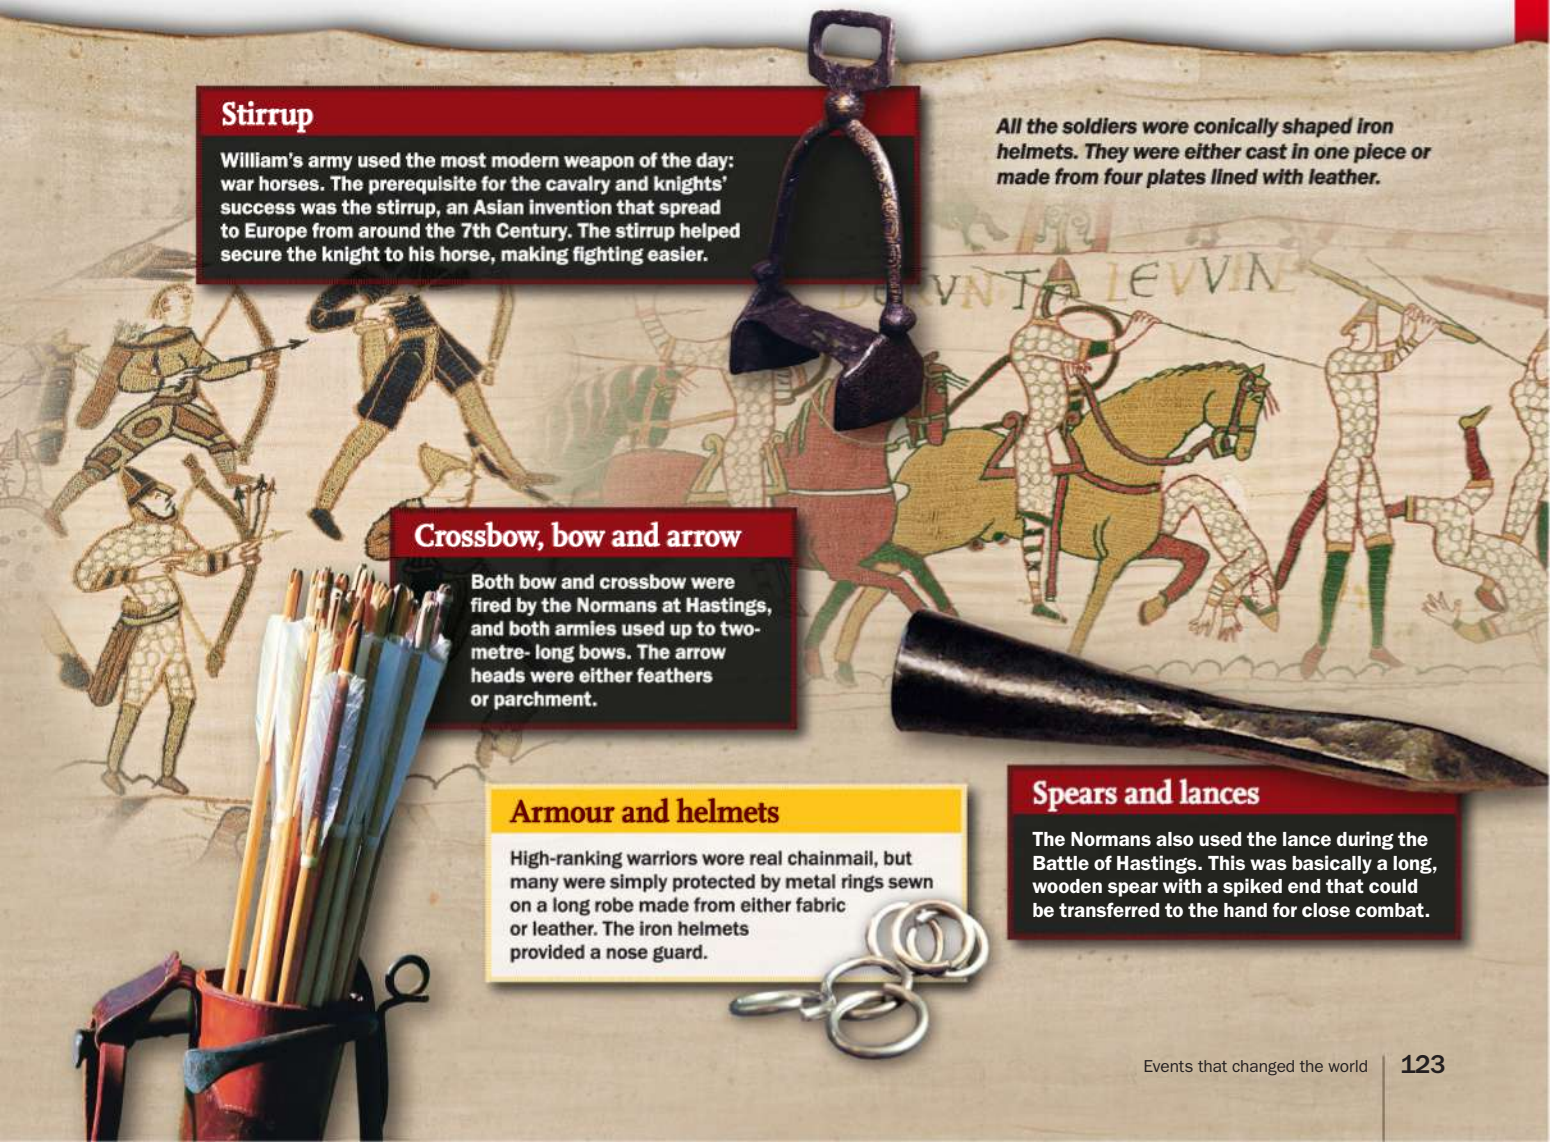 Stirrup
William's army used the most modern weapon of the day:
war horses. The prerequisite for the cavalry and knights'
success was the stirrup, an Asian invention that spread
to Europe from around the 7th Century. The stirrup helped
secure the knight to his horse, making fighting easier.
All the soldiers wore conically shaped iron
helmets. They were either cast in one piece or
made from four plates lined with leather.
LEVVIN
Crossbow, bow and arrow
Both bow and crossbow were
fired by the Normans at Hastings,
and both armies used up to two-
metre- long bows. The arrow
heads were either feathers
or parchment.
Armour and helmets
High-ranking warriors wore real chainmail, but
many were simply protected by metal rings sewn
on a long robe made from either fabric
or leather. The iron helmets
provided a nose guard.
Spears and lances
The Normans also used the lance during the
Battle of Hastings. This was basically a long,
wooden spear with a spiked end that could
be transferred to the hand for close combat.
Events that changed the world 123